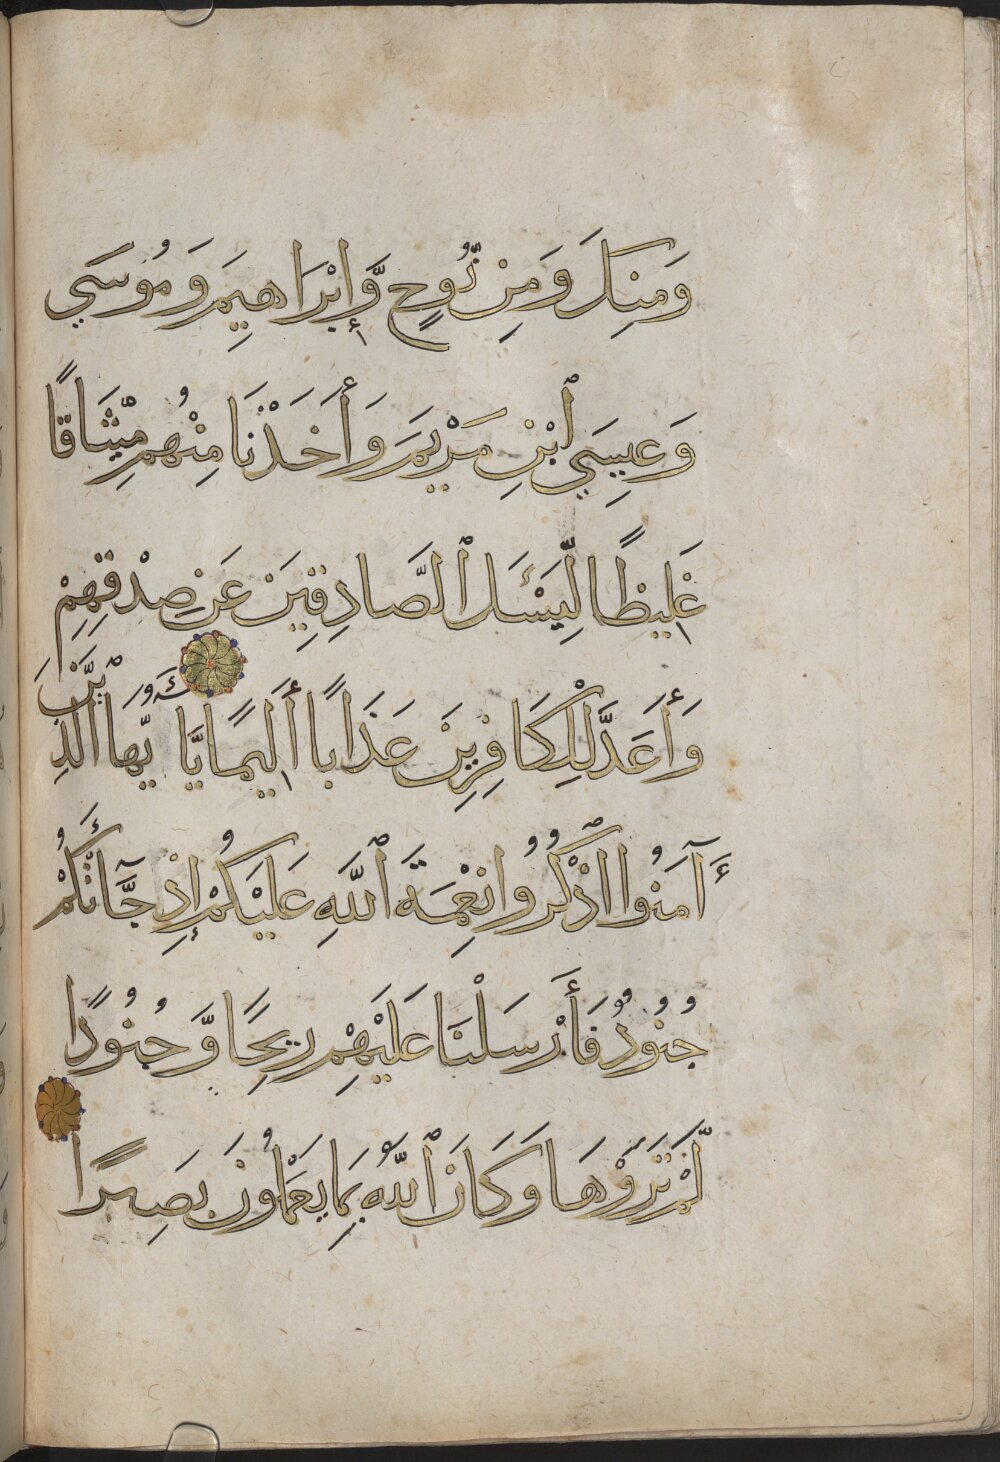 وَمِنكَ وَمِن نُّوحٍ وَّإِبْرَاهِيمَ وَمُوسَي
وَعِيسَي ٱبْنِ مَرْيَمَ وَأَخَذْنَا مِنْهُم مِّيثَاقًا
غَلِيظًا لِّيَسْـَٔلَ ٱلصَّادِقِينَ عَن صِدْقِهِمْ
وَأَعَدَّ لِلْكَافِرِينَ عَذَابًا أَلِيمًا يَا يُّهَا الَّذِينَ
ءَآمَنُوا اذْكُرُوا نِعْمَةَ ٱللَّهِ عَلَيْكُمْ إِذْ جَآئَتْكُمْ
جُنُودٌ فَأَرْسَلْنَا عَلَيْهِمْ رِيحًا وَّجُنُودًا
لَّمْ تَرَوْهَا وَكَانَ ٱللَّهُ بِمَا يَعْمَلُونَ بَصِيرًا